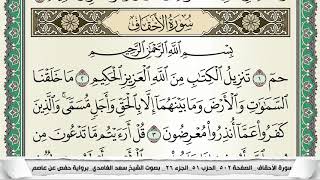 سُورَةُ الأَحۡقَافِ
بِسۡمِ ٱللَّهِ ٱلرَّحۡمَٰنِ ٱلرَّحِيمِ
حمٓ ١ تَنزِيلُ ٱلۡكِتَٰبِ مِنَ ٱللَّهِ ٱلۡعَزِيزِ ٱلۡحَكِيمِ ٢ مَا خَلَقۡنَا
ٱلسَّمَٰوَٰتِ وَٱلۡأَرۡضَ وَمَا بَيۡنَهُمَآ إِلَّا بِٱلۡحَقِّ وَأَجَلٖ مُّسَمّٗىۚ وَٱلَّذِينَ
كَفَرُواْ عَمَّآ أُنذِرُواْ مُعۡرِضُونَ ٣ قُلۡ أَرَءَيۡتُم مَّا تَدۡعُونَ مِن
سورة الأحقاف الصفحة ٥٠٢ الحزب ٥١ الجزء ٢٦ بصوت الشيخ سعد الغامدي برواية حفص عن عاصم